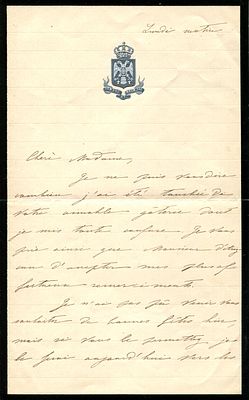 Lundi matin
Chère Madame,
Je ne puis vous dire
combien j'ai été touchée de
votre aimable gâterie dont
je suis toute confuse. Je vous
prie ainsi que Monsieur
d'accepter mes plus
remerciements.
Je n'ai pas pu venir vous
souhaiter de bonnes fêtes hier,
mais si vous le permettez je
le ferai aujourd'hui vers les